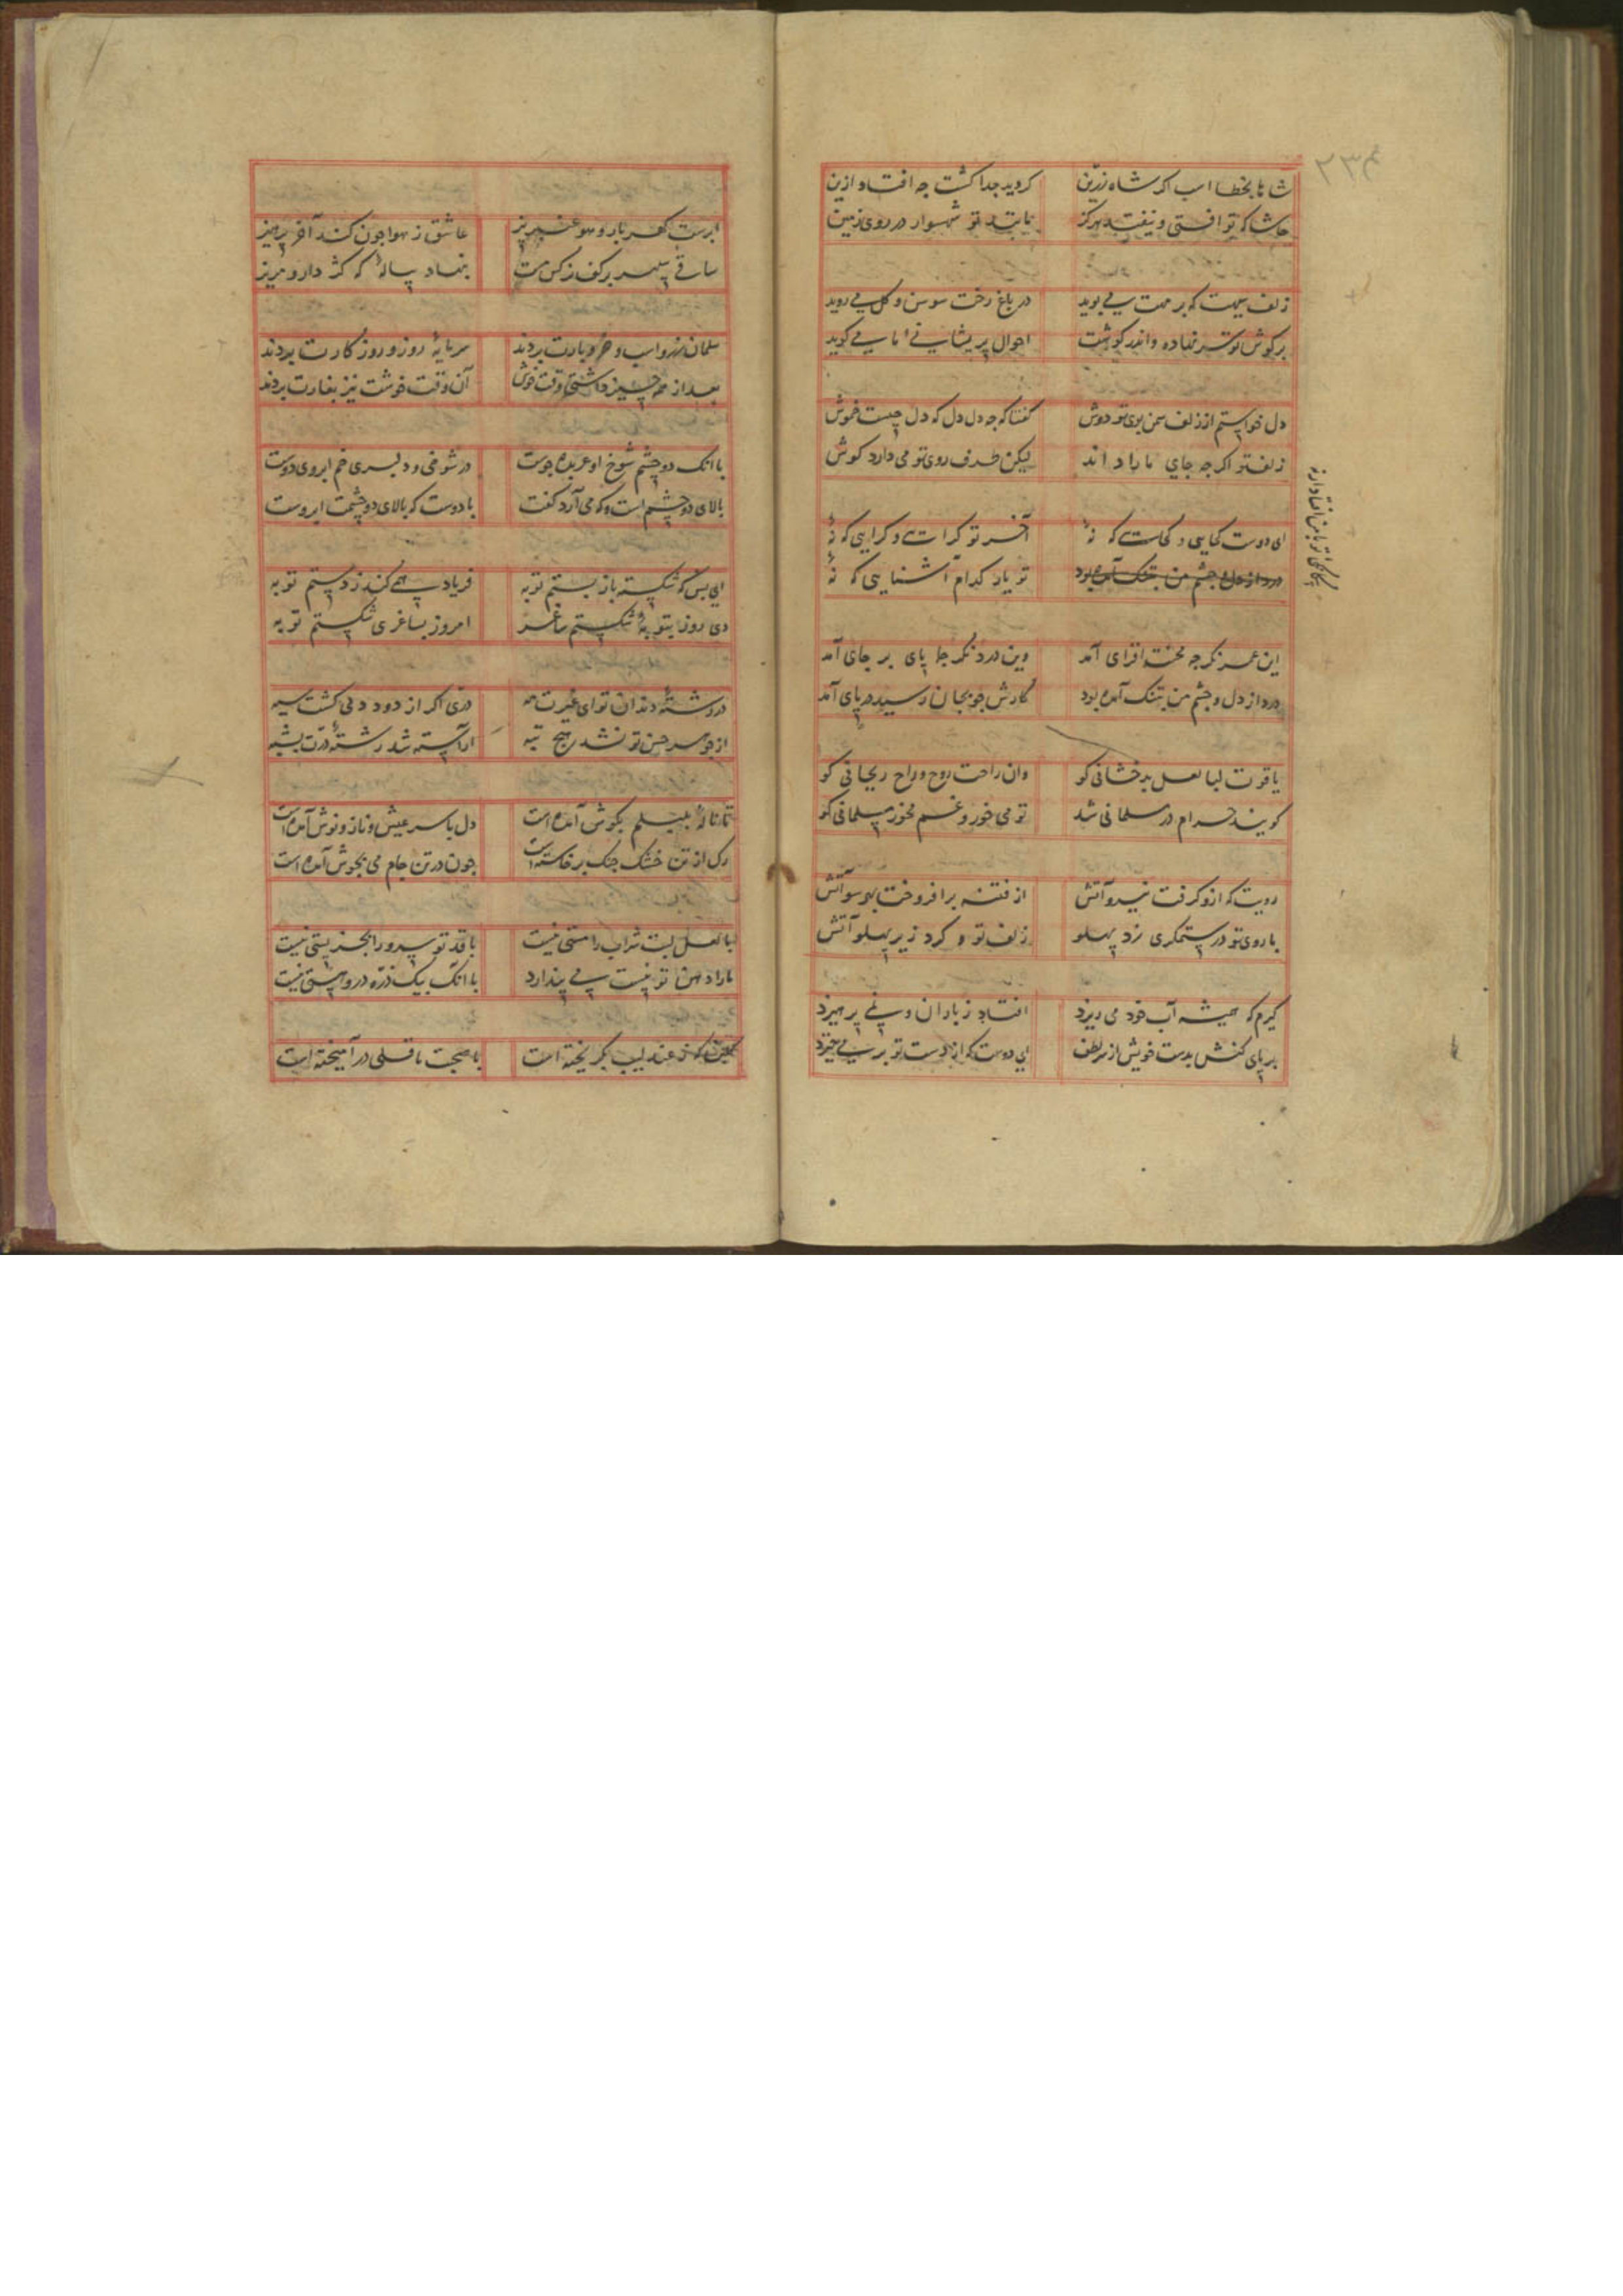 ۲۳۴
شاها بخطا اسب اگر شاه زرین کردید جدا گشت چه افتاد ازین
حاشا که تو افتی و نیفتد هرگز تابنده تو شهسوار در روی زمین
زلف سیهت که بر مهت می پوید در باغ رخت سوسن و گل می روید
بر گوش تو سر نهاده و اندر گوشت احوال پریشانی ما می گوید
دل خواستم از زلف سمن بوی تو دوش گفتا که چه دل دل که دل چیست خموش
زلف تو اگرچه جای ما راد اند لیکن طرف روی تو می دارد گوش
ای دوست کجایی و کجاست که نهٔ آخر تو کراست و کرایی که نهٔ
تو یار کدام آشنایی که نهٔ
این عمر نگر چه محنت افزای آمد وین درد نگر جا پای بر جای آمد
درد از دل و چشم من بتنک آمده بود کارش چو بجان رسید در پای آمد
یاقوت لبا لعل بدخشانی کو وان راحت روح و راح ریحانی کو
گویند حرام در مسلمانی شد تو می خور و غم مخور مسلمانی کو
رویت که ازو گرفت نیرو آتش از فتنه برافروخت بهر سو آتش
با روی تو در ستمگری زد پهلو زلف تو و کرد زیر پهلو آتش
گیرم که همیشه آب خود می ریزد افتاد ز باران و نمی پرهیزد
بر پای کنش بدست خویش از سر لطف ای دوست که از دست تو بر می خیزد
ابرست گهربار و هوا عنبربیز عاشق ز هوا چون کند آخر پرهیز
ساقی سپهر بر کف نرگس مست بنهاد پیالهٔ که کژ دار و مریز
سلمان زر و اسب و خر و بارت بردند سرمایهٔ روز و روزگارت بردند
بعد از همه چیز داشتی وقت خوش آن وقت خوشت نیز بغارت بردند
با آنک دو چشم شوخ او عربده جوست در شوخی و دلبری خم ابروی دوست
بالای دو چشم است و که می آرد گفت با دوست که بالای دو چشمت ابروست
ای بس که شکسته باز بستم توبه فریاد همی کند ز دستم توبه
دی روز بتوبهٔ شکستم ساغر امروز بساغری شکستم توبه
در رشتهٔ دندان تو ای غیرت مه دری اگر از دود دمی گشت سیه
از جوهر حسن تو نشد هیچ تبه آراسته شد رشتهٔ درت بشبه
تا نالهٔ بلبلم بگوش آمده است دل با سر عیش و ناز و نوش آمده است
رگ از تن خشک چنگ برخاسته است چون در تن جام می بجوش آمده است
با لعل لبت شراب را مستی نیست با قد تو سرو را بجز پستی نیست
ما را دهن تو نیست می پندارد با آنک بیک ذره درو هستی نیست
که ز عندلیب بگریخته است با صحبت باقلی در آمیخته است